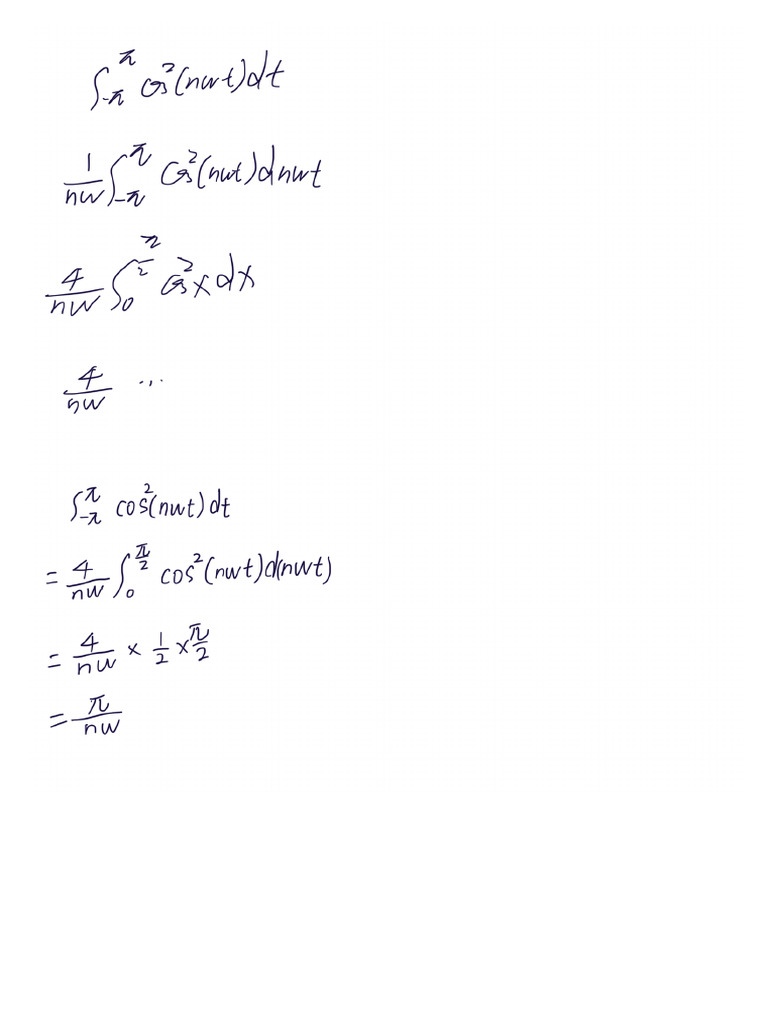 ∫_{-π}^{π} cos²(nwt)dt
1/nw ∫_{-π}^{π} cos²(nwt)dnwt
4/nw ∫_0^{π/2} cos²xdx
4/nw ...
∫_{-π}^{π} cos²(nwt)dt
= 4/nw ∫_0^{π/2} cos²(nwt)d(nwt)
= 4/nw × 1/2 × π/2
= π/nw